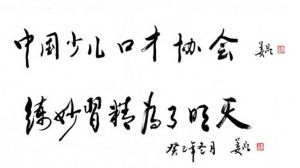 中国少儿口才协会
练妙习精为了明天
癸巳年冬月 姜昆